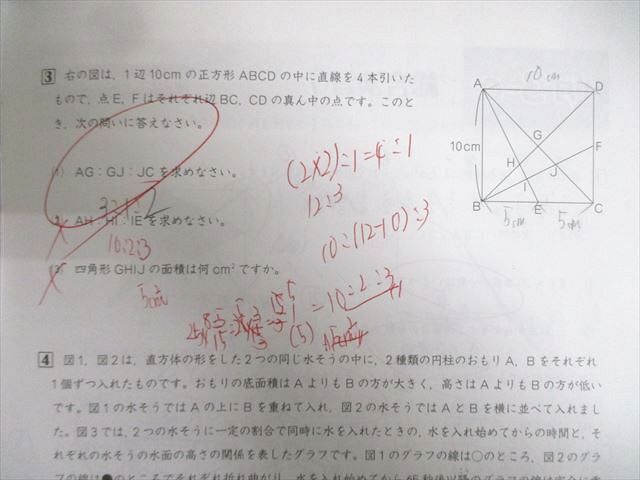 3 右の図は、1辺10cmの正方形ABCDの中に直線を4本引いた
もので、点E、Fはそれぞれ辺BC、CDの真ん中の点です。このと
き、次の問いに答えなさい。
(1) AG：GJ：JCを求めなさい。
3:1:2
(2) AH：HI：IEを求めなさい。
10:2:3
(3) 四角形GHIJの面積は何cm²ですか。
5cm²
(2×2):1=4:1
12:3
10:(12-10):3
=10:2:3
(5)
10cm
A
D
10cm
G
F
H
J
I
B
E
C
5cm
5cm
4 図1、図2は、直方体の形をした2つの同じ水そうの中に、2種類の円柱のおもりA、Bをそれぞれ
1個ずつ入れたものです。おもりの底面積はAよりもBの方が大きく、高さはAよりもBの方が低い
です。図1の水そうではAの上にBを重ねて入れ、図2の水そうではAとBを横に並べて入れまし
た。図3では、2つの水そうに一定の割合で同時に水を入れたときの、水を入れ始めてからの時間と、そ
れぞれの水そうの水面の高さの関係を表したグラフです。図1のグラフの線は○のところ、図2のグラ
フの線は●のところでそれぞれ折れ曲がり、水を入れ始めてから